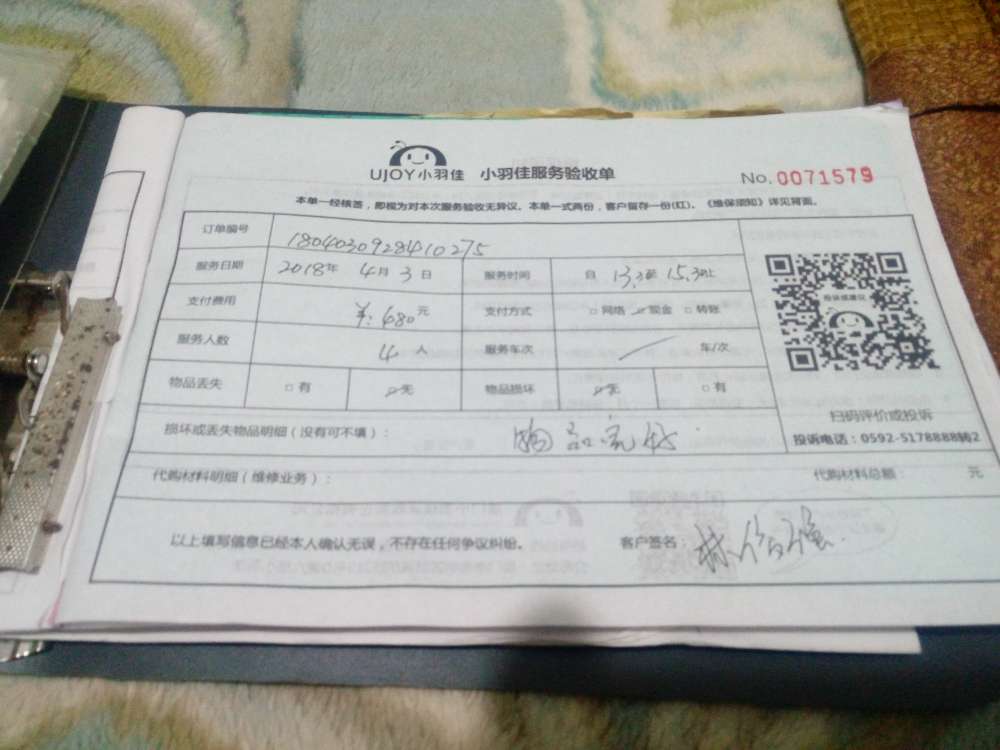 UJOY小羽佳 小羽佳服务验收单 No.0071579
本单一经核签，即视为对本次服务验收无异议。本单一式两份，客户留存一份(红)。《维保须知》详见背面。
订单编号 1804030928410275
服务日期 2018年 4月 3日 服务时间 自 13.30至 15.30止
支付费用 ¥:680元 支付方式 □网络 ☑现金 □转账
服务人数 4人 服务车次 / 车/次
物品丢失 □有 ☑无 物品损坏 ☑无 □有
投诉或建议
扫码评价或投诉
损坏或丢失物品明细（没有可不填）： 物品完好
投诉电话：0592-5178888转2
代购材料明细（维修业务）： 代购材料总额： 元
以上填写信息已经本人确认无误，不存在任何争议纠纷。 客户签名：